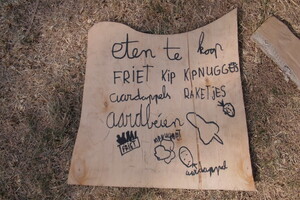 eten te koop
FRIET KIP KIPNUGGES
aardappels RAKETJES
aardbeien
FRIET
aardappel